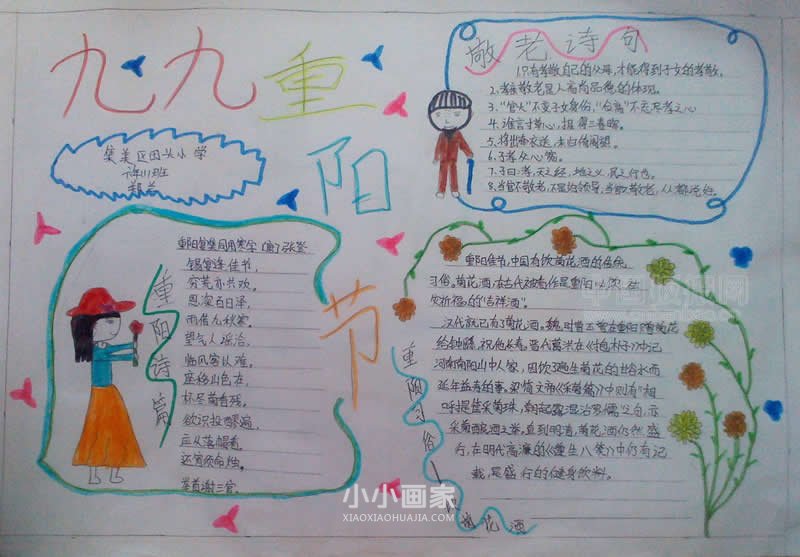 九九重阳节
敬老诗句
1.只有孝敬自己的父母,才能得到子女的孝敬。
2.孝亲敬老是人高尚品德的体现。
3."官大"不变子女身份,
4.谁言寸草心,报得三春晖。
6.子孝父心宽。
7.子曰:孝,天之经,地之义,民之行也。
8.当官不敬老,不是好领导,当敬老,从都
集美区
小学
班
重阳诗篇
重阳
锡宴逢佳节,
穷荒亦共欢。
恩深百日泽,
雨借九秋寒。
望气人谣洽,
临风客认难。
座移山色在,
杯尽菊香残。
欲识投醪遍,
应从落帽看。
还宵须命烛,
举首谢三官。
重阳佳节,中国有饮菊花酒的传统
习俗。菊花酒,在古代被看作是重阳必饮、
灾祈福的"吉祥酒"。
汉代就已有了菊花酒。魏时曹丕曾在重阳赠菊花
给钟繇,祝他长寿。晋代葛洪在《抱朴子》中记
河南南阳山中人家,因饮了遍生菊花的甘谷水而
延年益寿的事。梁简文帝《采菊篇》中则有"相
呼提筐采菊珠,朝起露湿沾罗襦"之句,亦
采菊酿酒之举。直到明清,菊花酒仍然盛
行,在明代高濂的《遵生八笺》中仍有记
载,是盛行的健身饮料。
重阳习俗
花酒
小小画家
XIAOXIAOHUAJIA.COM